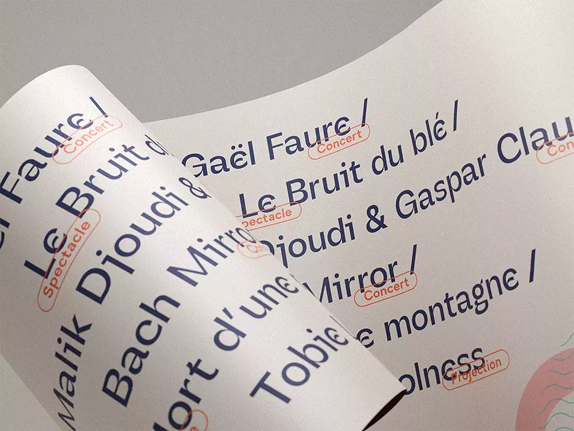 Faure /
Concert
Le Bruit d
Spectacle
Malik Djoudi &
Bach Mirro
Mort d'une
Tobie
Gaël Faure /
Concert
Le Bruit du blé /
Spectacle
Djoudi & Gaspar Clau
Con
Mirror /
Concert
e montagne /
olness
Projection